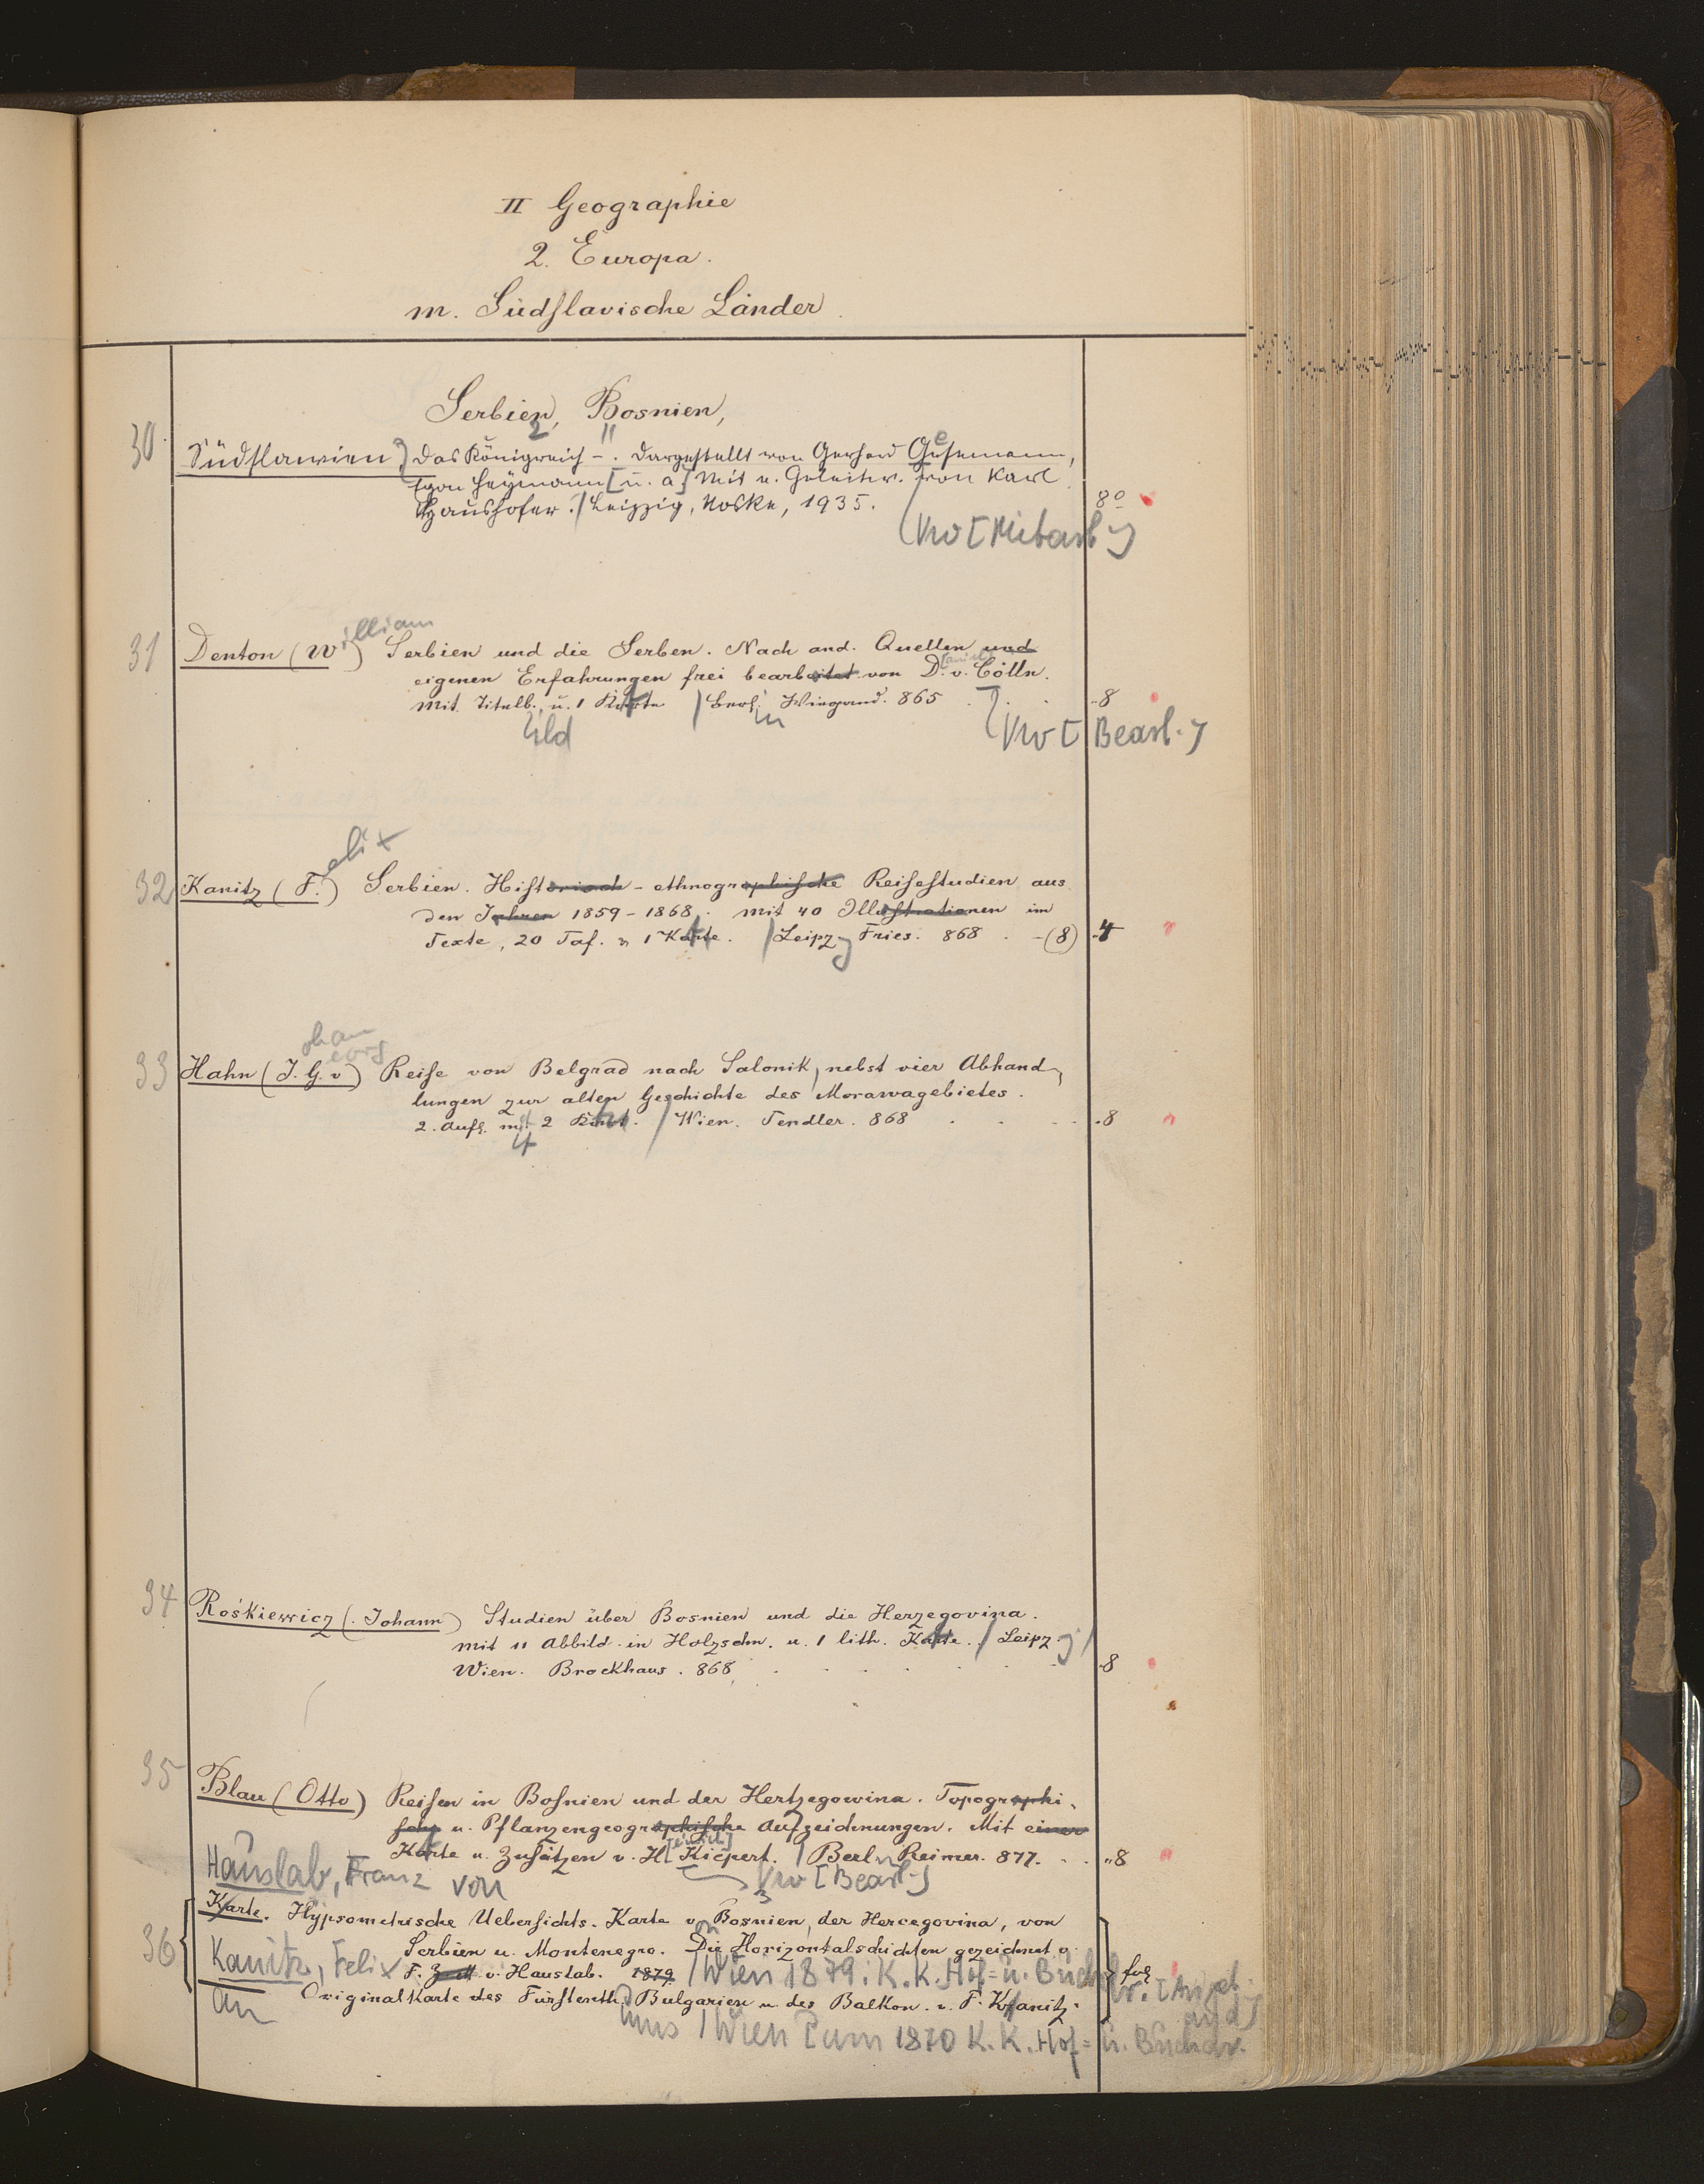 II Geographie
2. Europa.
m. Südslavische Länder.
Serbien, Bosnien,
30 Südslawien, Das Königreich –. Dargestellt von Gerhard Gesemann,
Egon Heymann [u. a.] Mit e. Geleitw. von Karl
Haushofer. / Leipzig, Noske, 1935. 8°
Vw [Mitarb.]
31 Denton (William) Serbien und die Serben. Nach and. Quellen und
eigenen Erfahrungen frei bearbeitet von D. v. Cölln.
Mit Titelb. u. 1 Karte / Berl. Wiegand. 865 . . 8
bild in Vw [Bearb.]
32 Kanitz (Felix) Serbien. Historisch-ethnographische Reisestudien aus
den Jahren 1859-1868. Mit 40 Illustrationen im
Texte, 20 Taf. u 1 Karte. / Leipzg Fries. 868 . -(8) 4
33 Hahn (J. G. v) Reise von Belgrad nach Salonik, nebst vier Abhand-
lungen zur alten Geschichte des Morawagebietes.
2. Aufl. mit 2 Kart. / Wien. Tendler. 868 . . . 8
34 Roskiewicz (Johann) Studien über Bosnien und die Herzegovina.
Mit 11 Abbild. in Holzschn. u. 1 lith. Karte. / Leipzg /
Wien. Brockhaus. 868, . . . . . 8
35 Blau (Otto) Reisen in Bosnien und der Hertzegowina. Topographi-
sche u. Pflanzengeographische Aufzeichnungen. Mit einer
Karte u. Zusätzen v. H[einrich] Kiepert. / Berl. Reimer. 877. . . 8
Hauslab, Franz von Vw [Bearb.]
36 Karte. Hypsometrische Uebersichts-Karte von Bosnien, der Hercegovina, von
Serbien u. Montenegro. Die Horizontalschichten gezeichnet v.
Kanitz, Felix F. v. Hauslab. 1879 / Wien 1879: K. K. Hof- u. Buchdr. fol
Originalkarte des Fürstenth. Bulgarien u. des Balkon. v. F. Kanitz.
tums / Wien [um 1870 K. K. Hof- u. Buchdr.